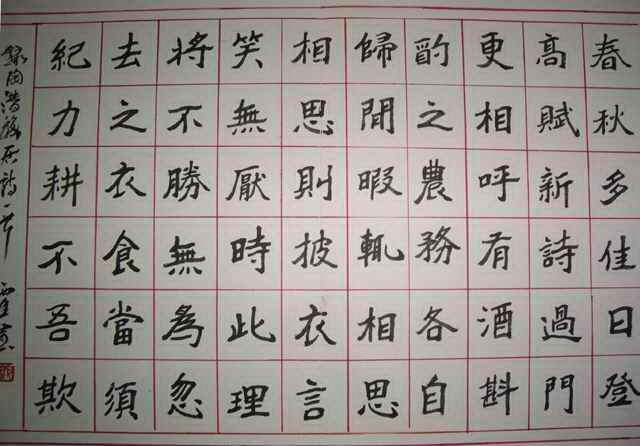 春秋多佳日登
高賦新詩過門
更相呼有酒斟
酌之農務各自
歸閒暇輒相思
相思則披衣言
笑無厭時此理
將不勝無為忽
去之衣食當須
紀力耕不吾欺
錄陶潛移居詩一